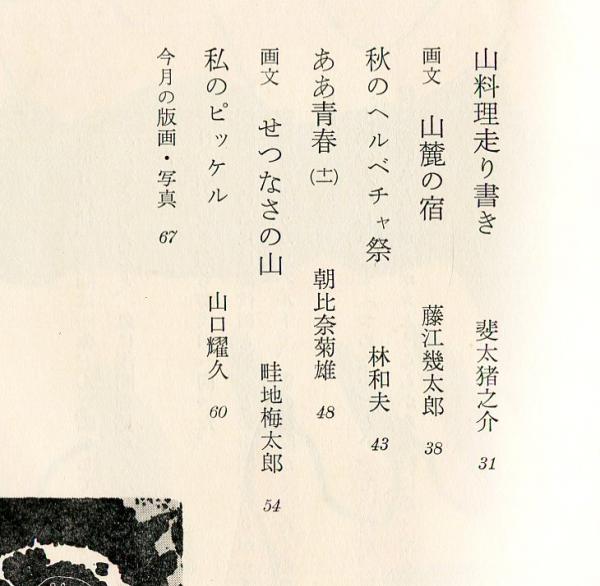 山料理走り書き 斐太猪之介 31
画文 山麓の宿 藤江幾太郎 38
秋のヘルベチャ祭 林和夫 43
ああ青春(十一) 朝比奈菊雄 48
画文 せつなさの山 畦地梅太郎 54
私のピッケル 山口耀久 60
今月の版画・写真 67